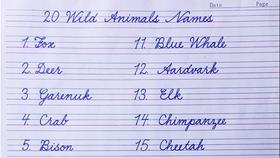 Date Page
20 Wild Animals Names
1. Fox 11. Blue Whale
2. Deer 12. Aardvark
3. Garenuk 13. Elk
4. Crab 14. Chimpanzee
5. Bison 15. Cheetah